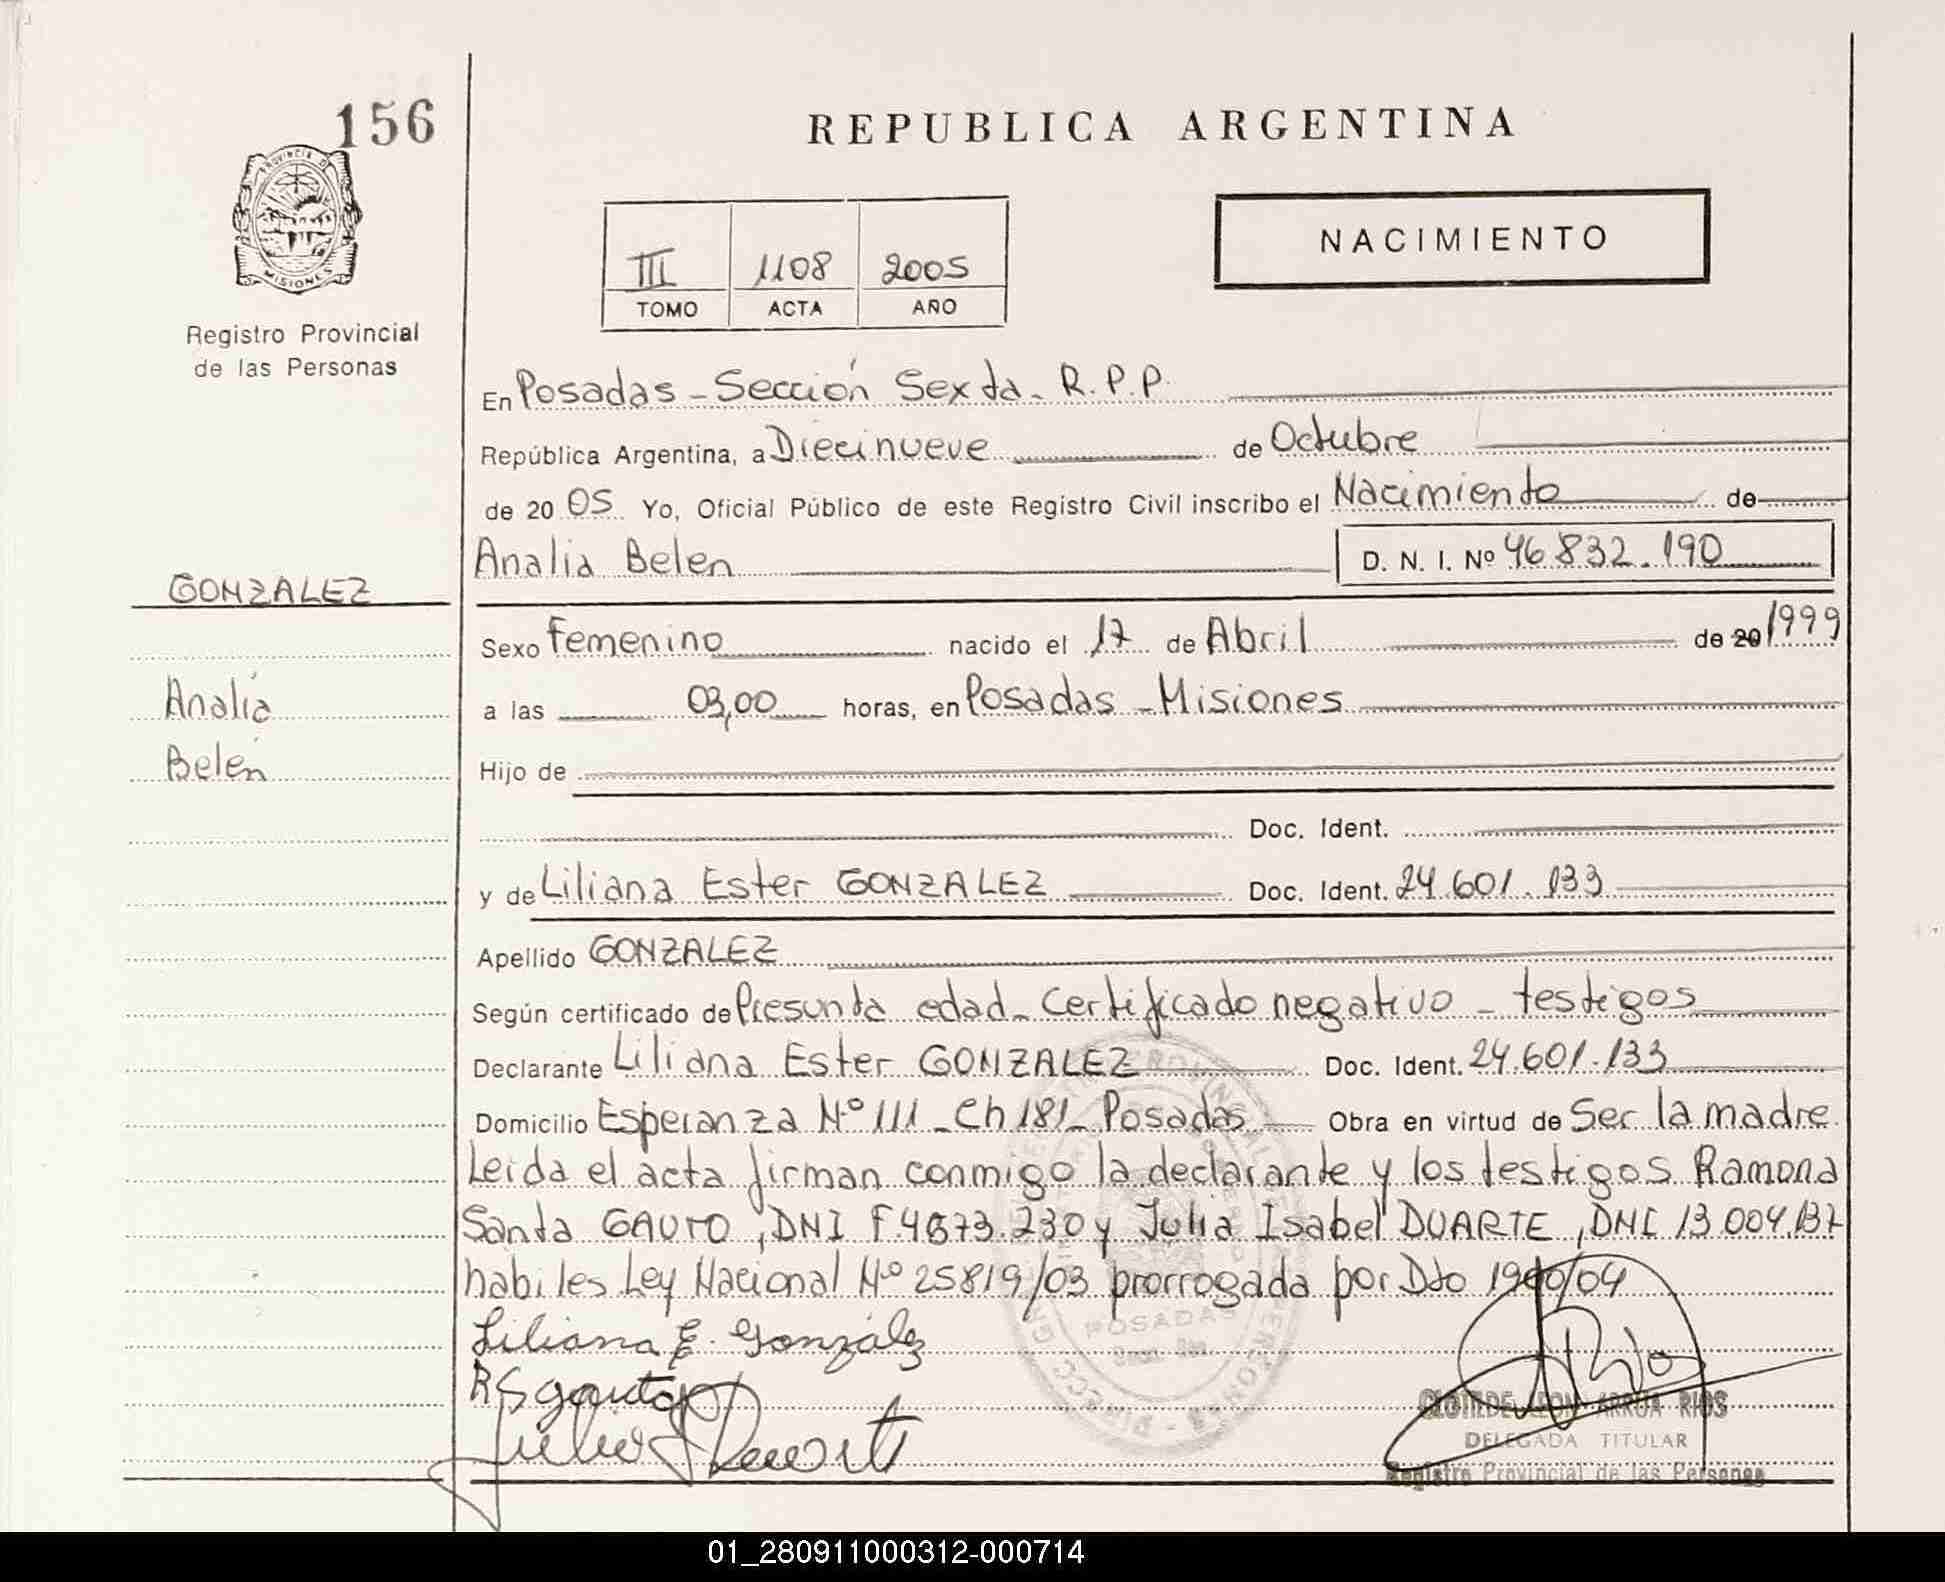 156
REPUBLICA ARGENTINA
PROVINCIA DE
MISIONES
Registro Provincial
de las Personas
NACIMIENTO
III 1108 2005
TOMO ACTA AÑO
En Posadas - Sección Sexta - R.P.P.
República Argentina, a Diecinueve de Octubre
de 20 05 Yo, Oficial Público de este Registro Civil inscribo el Nacimiento de
Analia Belen D. N. I. Nº 46.832.190
GONZALEZ
Analía
Belén
Sexo Femenino nacido el 17 de Abril de 20 1999
a las 03,00 horas, en Posadas - Misiones
Hijo de
Doc. Ident.
y de Liliana Ester GONZALEZ Doc. Ident. 24.601.133
Apellido GONZALEZ
Según certificado de Presunta edad - Certificado negativo - testigos
Declarante Liliana Ester GONZALEZ Doc. Ident. 24.601.133
Domicilio Esperanza Nº 111 - Ch 181 - Posadas Obra en virtud de Ser la madre
Leida el acta firman conmigo la declarante y los testigos Ramona
Santa GAUTO, DNI y Julia Isabel DUARTE, DNI 13.004.137
habiles Ley Nacional Nº 25819/03 prorrogada por Dto
Liliana E. González
RSgauto
POSADAS
CLOTILDE LEON ARRUA RIOS
DELEGADA TITULAR
Registro Provincial de las Personas
01_280911000312-000714